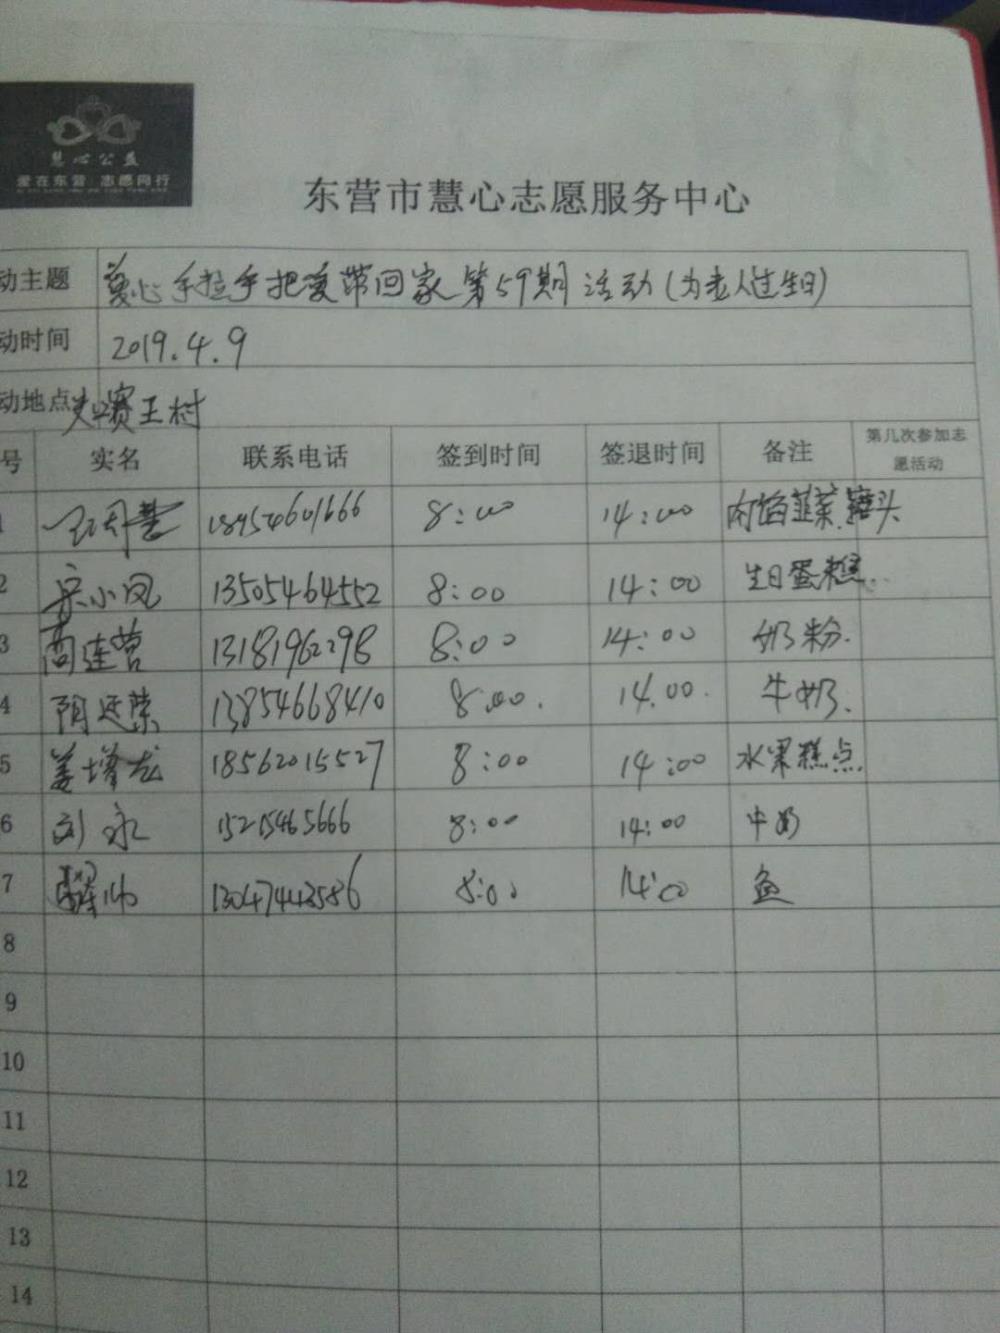 慧心公益
爱在东营 志愿同行
东营市慧心志愿服务中心
动主题 心手拉手把爱带回家第59期活动(为老人过生日)
动时间 2019.4.9
动地点 赛王村
号 实名 联系电话 签到时间 签退时间 备注 第几次参加志愿活动
1 18954601666 8:00 14:00 肉馅韭菜罐头
2 宋小凤 13505464552 8:00 14:00 生日蛋糕
3 高连营 13181962298 8:00 14:00 奶粉.
4 阴廷荣 13854668410 8:00. 14.00. 牛奶.
5 姜增龙 18562015527 8:00 14:00 水果糕点.
6 刘永 15215465666 8:00 14:00 牛奶
7 13047443586 8:00 14:00 鱼
8
9
10
11
12
13
14